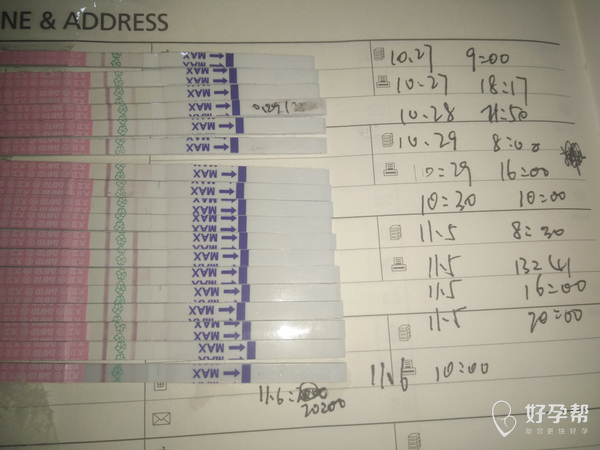 NE & ADDRESS
10.27 9:00
10.27 18:17
10.28
10.29 8:00
10:29 16:00
10:30 10:00
11.5 8:30
11.5 13:41
11.5 16:00
11.5 20:00
11.6 10:00
11.6:
20:00
MAX
MAX
MAX
MAX
MAX
MAX
MAX
MAX
MAX
MAX
MAX
MAX
MAX
MAX
MAX
MAX
MAX
好孕帮
助您更快好孕